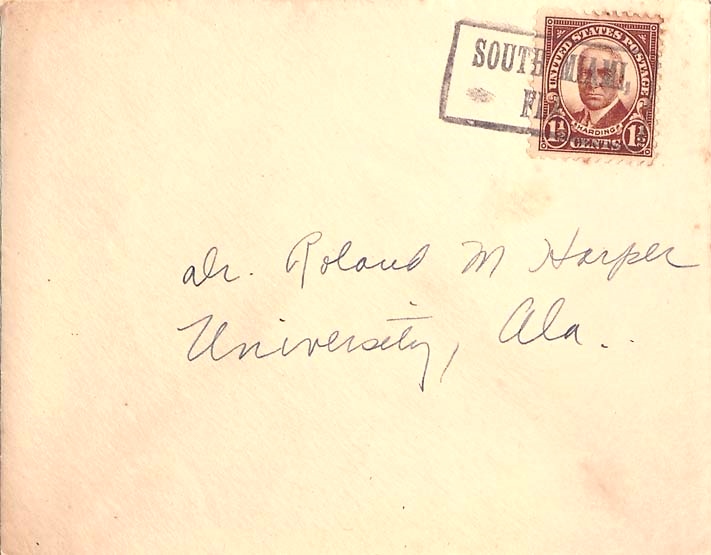 SOUTH MIAMI,
FLA.
UNITED STATES POSTAGE
HARDING
1½ CENTS 1½
Dr. Roland M Harper
University, Ala.